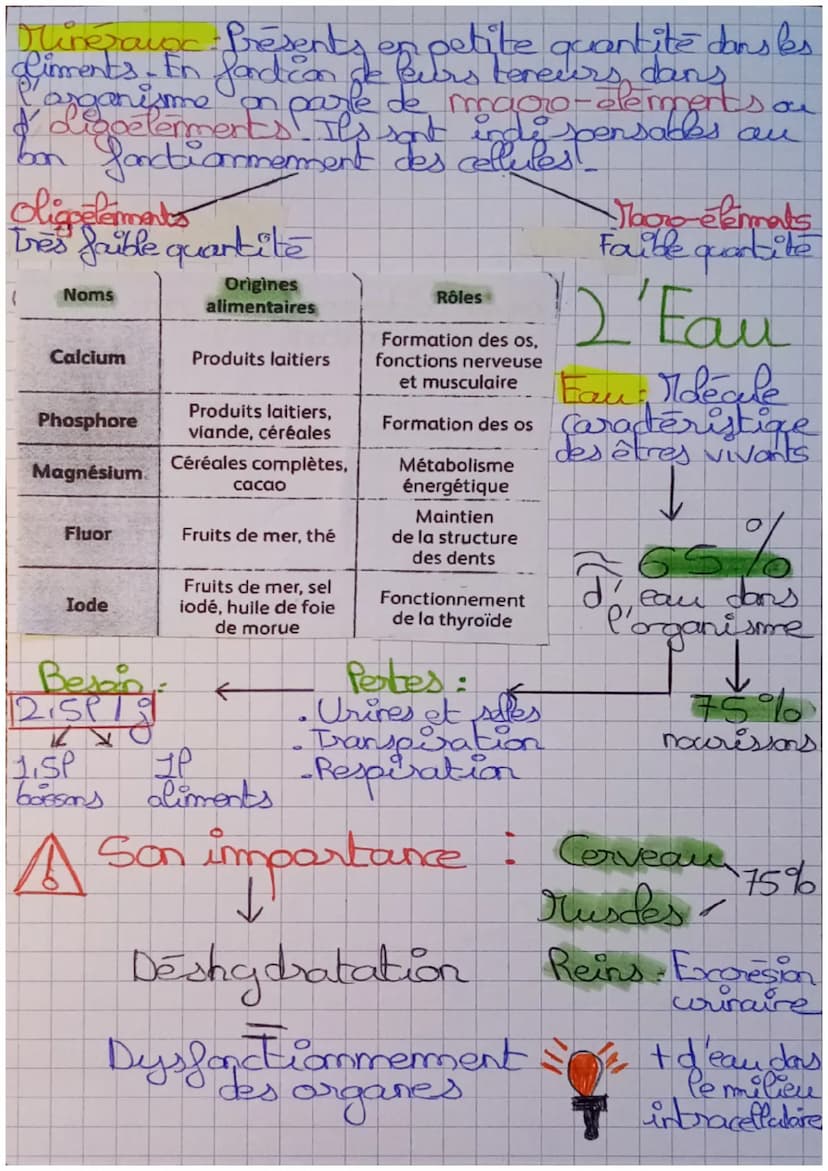 Minéraux : Présents en petite quantité dans les
aliments. En fonction de leurs teneurs dans
l'organisme on parle de macro-éléments ou
d'oligoéléments. Ils sont indispensables au
bon fonctionnement des cellules.
Oligoéléments
Très faible quantité
Macro-éléments
Faible quantité
Noms
Origines
alimentaires
Rôles
Calcium
Produits laitiers
Formation des os,
fonctions nerveuse
et musculaire
Phosphore
Produits laitiers,
viande, céréales
Formation des os
Magnésium
Céréales complètes,
cacao
Métabolisme
énergétique
Fluor
Fruits de mer, thé
Maintien
de la structure
des dents
Iode
Fruits de mer, sel
iodé, huile de foie
de morue
Fonctionnement
de la thyroïde
L'Eau
Eau : Molécule
caractéristique
des êtres vivants
≈ 65%
d'eau dans
l'organisme
75%
nourissons
Pertes :
. Urines et selles
. Transpiration
. Respiration
Besoin :
2,5l/j
1,5l
boissons
1l
aliments
Son importance :
Déshydratation
=
Dysfonctionnement
des organes
Cerveau
Muscles
75%
Reins : Excrésion
urinaire
+ d'eau dans
le milieu
intracellulaire